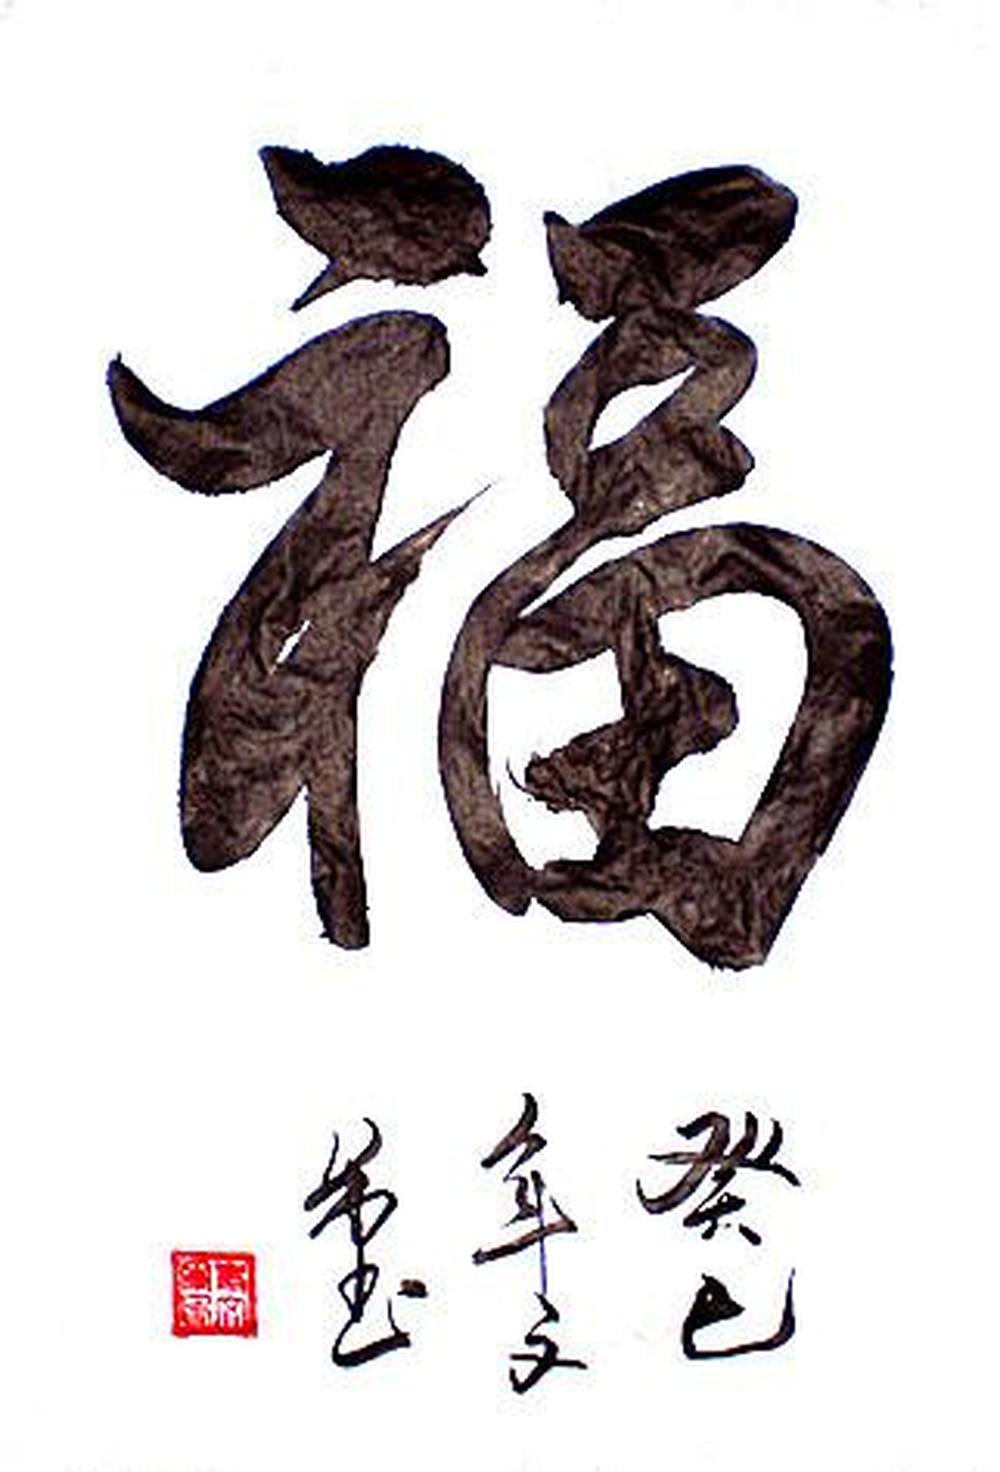 福
癸巳
年文